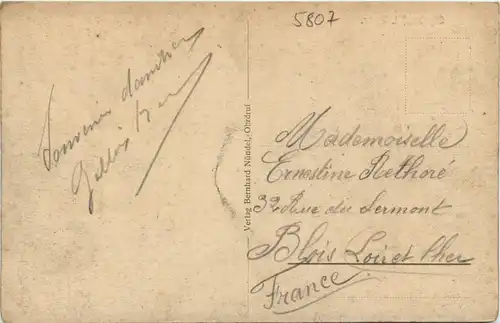 5807
Souvenir d'amitié
Verlag Bernhard Nündel, Ohrdruf
Mademoiselle
Ernestine Rethoré
32 Rue du Sermont
Blois Loir et Cher
France